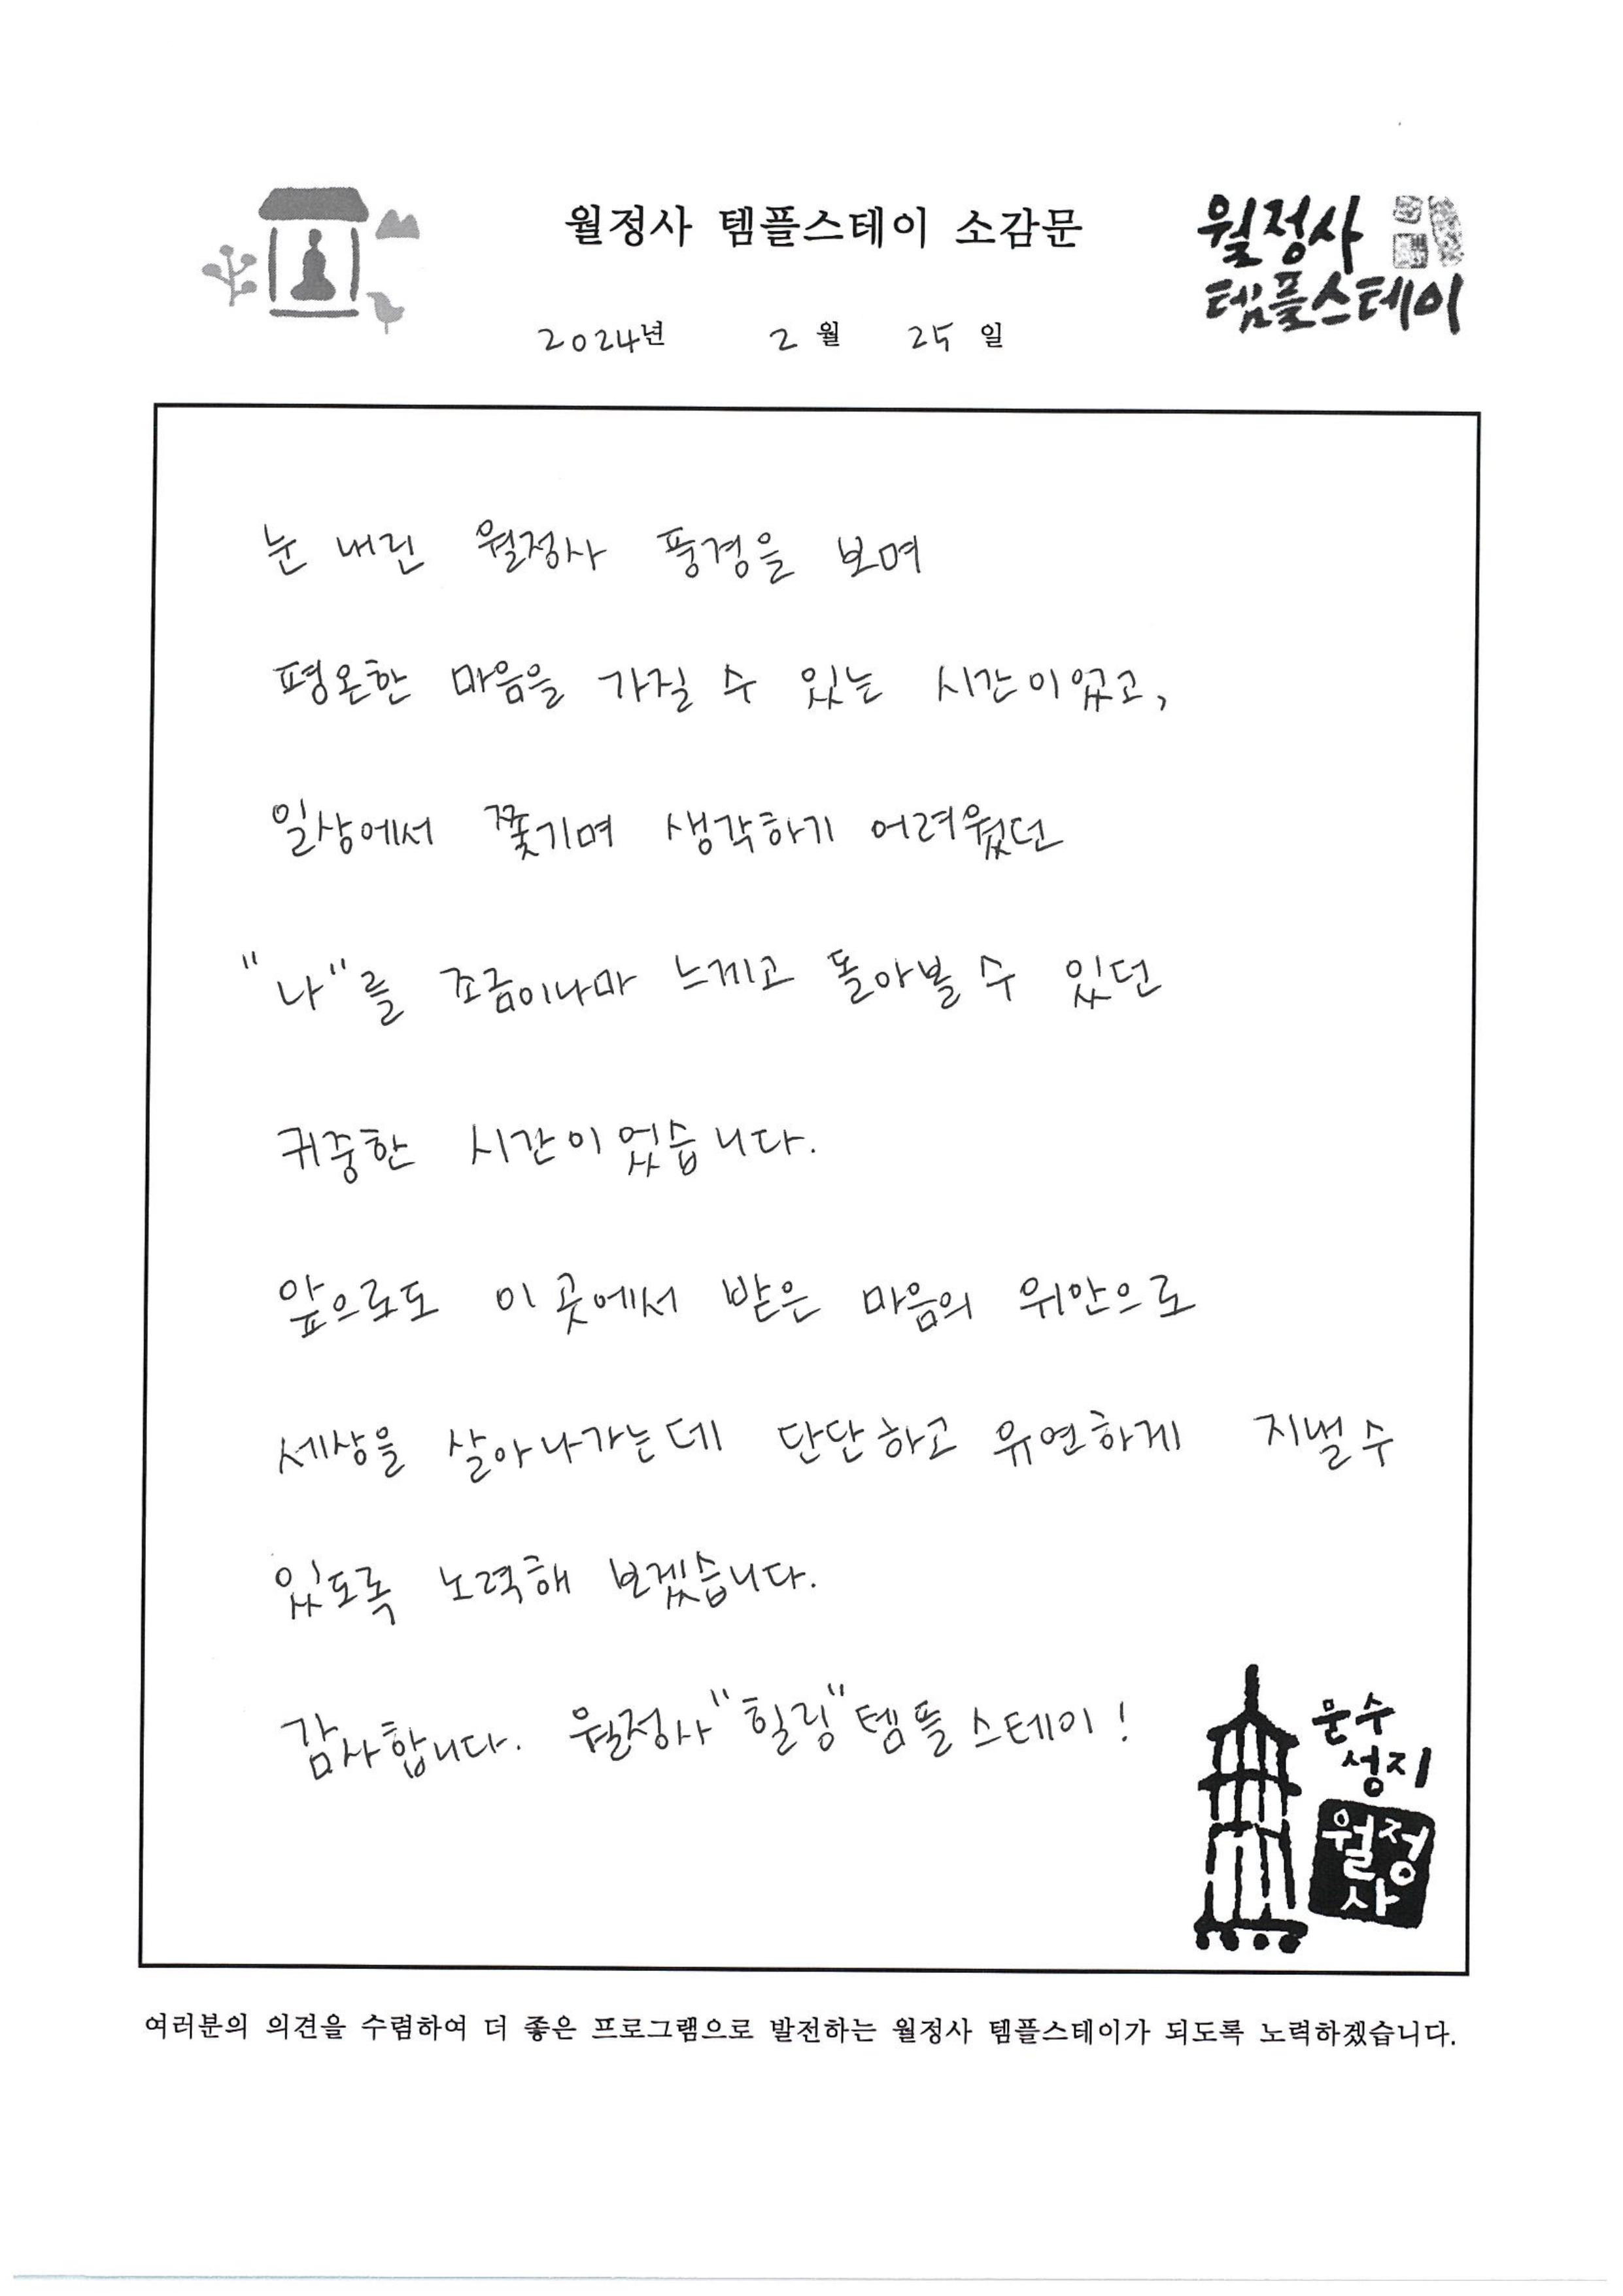 월정사 템플스테이 소감문
월정사
템플스테이
2024년 2월 25일
눈 내린 월정사 풍경을 보며
평온한 마음을 가질 수 있는 시간이었고,
일상에서 쫓기며 생각하기 어려웠던
"나"를 조금이나마 느끼고 돌아볼 수 있던
귀중한 시간이었습니다.
앞으로도 이 곳에서 받은 마음의 위안으로
세상을 살아나가는데 단단하고 유연하게 지낼 수
있도록 노력해 보겠습니다.
감사합니다. 월정사 "힐링" 템플스테이!
문수
성지
월정
사
여러분의 의견을 수렴하여 더 좋은 프로그램으로 발전하는 월정사 템플스테이가 되도록 노력하겠습니다.